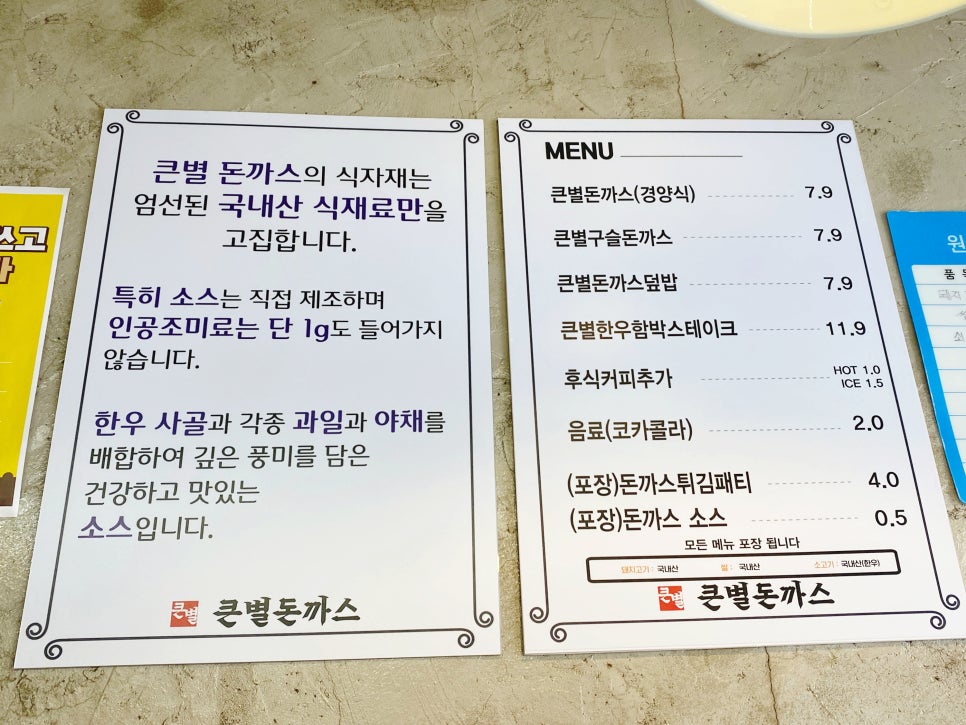 쓰고
큰별 돈까스의 식자재는
엄선된 국내산 식재료만을
고집합니다.
특히 소스는 직접 제조하며
인공조미료는 단 1g도 들어가지
않습니다.
한우 사골과 각종 과일과 야채를
배합하여 깊은 풍미를 담은
건강하고 맛있는
소스입니다.
큰별 큰별돈까스
MENU
큰별돈까스(경양식) 7.9
큰별구슬돈까스 7.9
큰별돈까스덮밥 7.9
큰별한우함박스테이크 11.9
후식커피추가 HOT 1.0
ICE 1.5
음료(코카콜라) 2.0
(포장)돈까스튀김패티 4.0
(포장)돈까스 소스 0.5
모든 메뉴 포장 됩니다
돼지고기 : 국내산 쌀 : 국내산 소고기 : 국내산(한우)
큰별 큰별돈까스
원
품